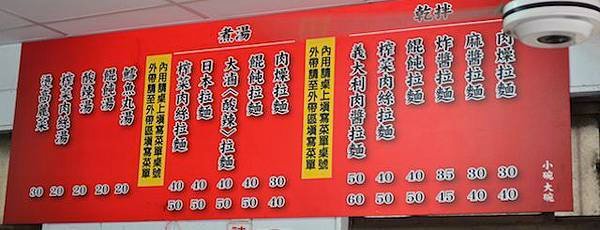 乾拌
肉燥拉麵 30 50
麻醬拉麵 30 40
炸醬拉麵 35 45
餛飩拉麵 40 50
榨菜肉絲拉麵 40 50
義大利肉醬拉麵 50 60
小碗 大碗
內用請桌上填寫菜單桌號
外帶請至外帶區填寫菜單
煮湯
肉燥拉麵 30 40
餛飩拉麵 40 50
大滷(酸辣)拉麵 40 50
日本拉麵 40 50
榨菜肉絲拉麵 40 50
內用請桌上填寫菜單桌號
外帶請至外帶區填寫菜單
鱈魚丸湯 20
餛飩湯 20
酸辣湯 20
榨菜肉絲湯 20
燙高麗菜 30